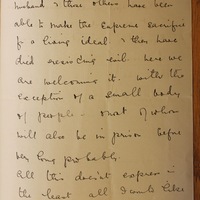 husband & those others have been
able to make the supreme sacrifice
for a living ideal. & they have
died resisting evil. here we
are welcoming it. with the
exception of a small body
of people - most of whom
will also be in prison before
very long probably.
All this doesn't express in
the least all I would like